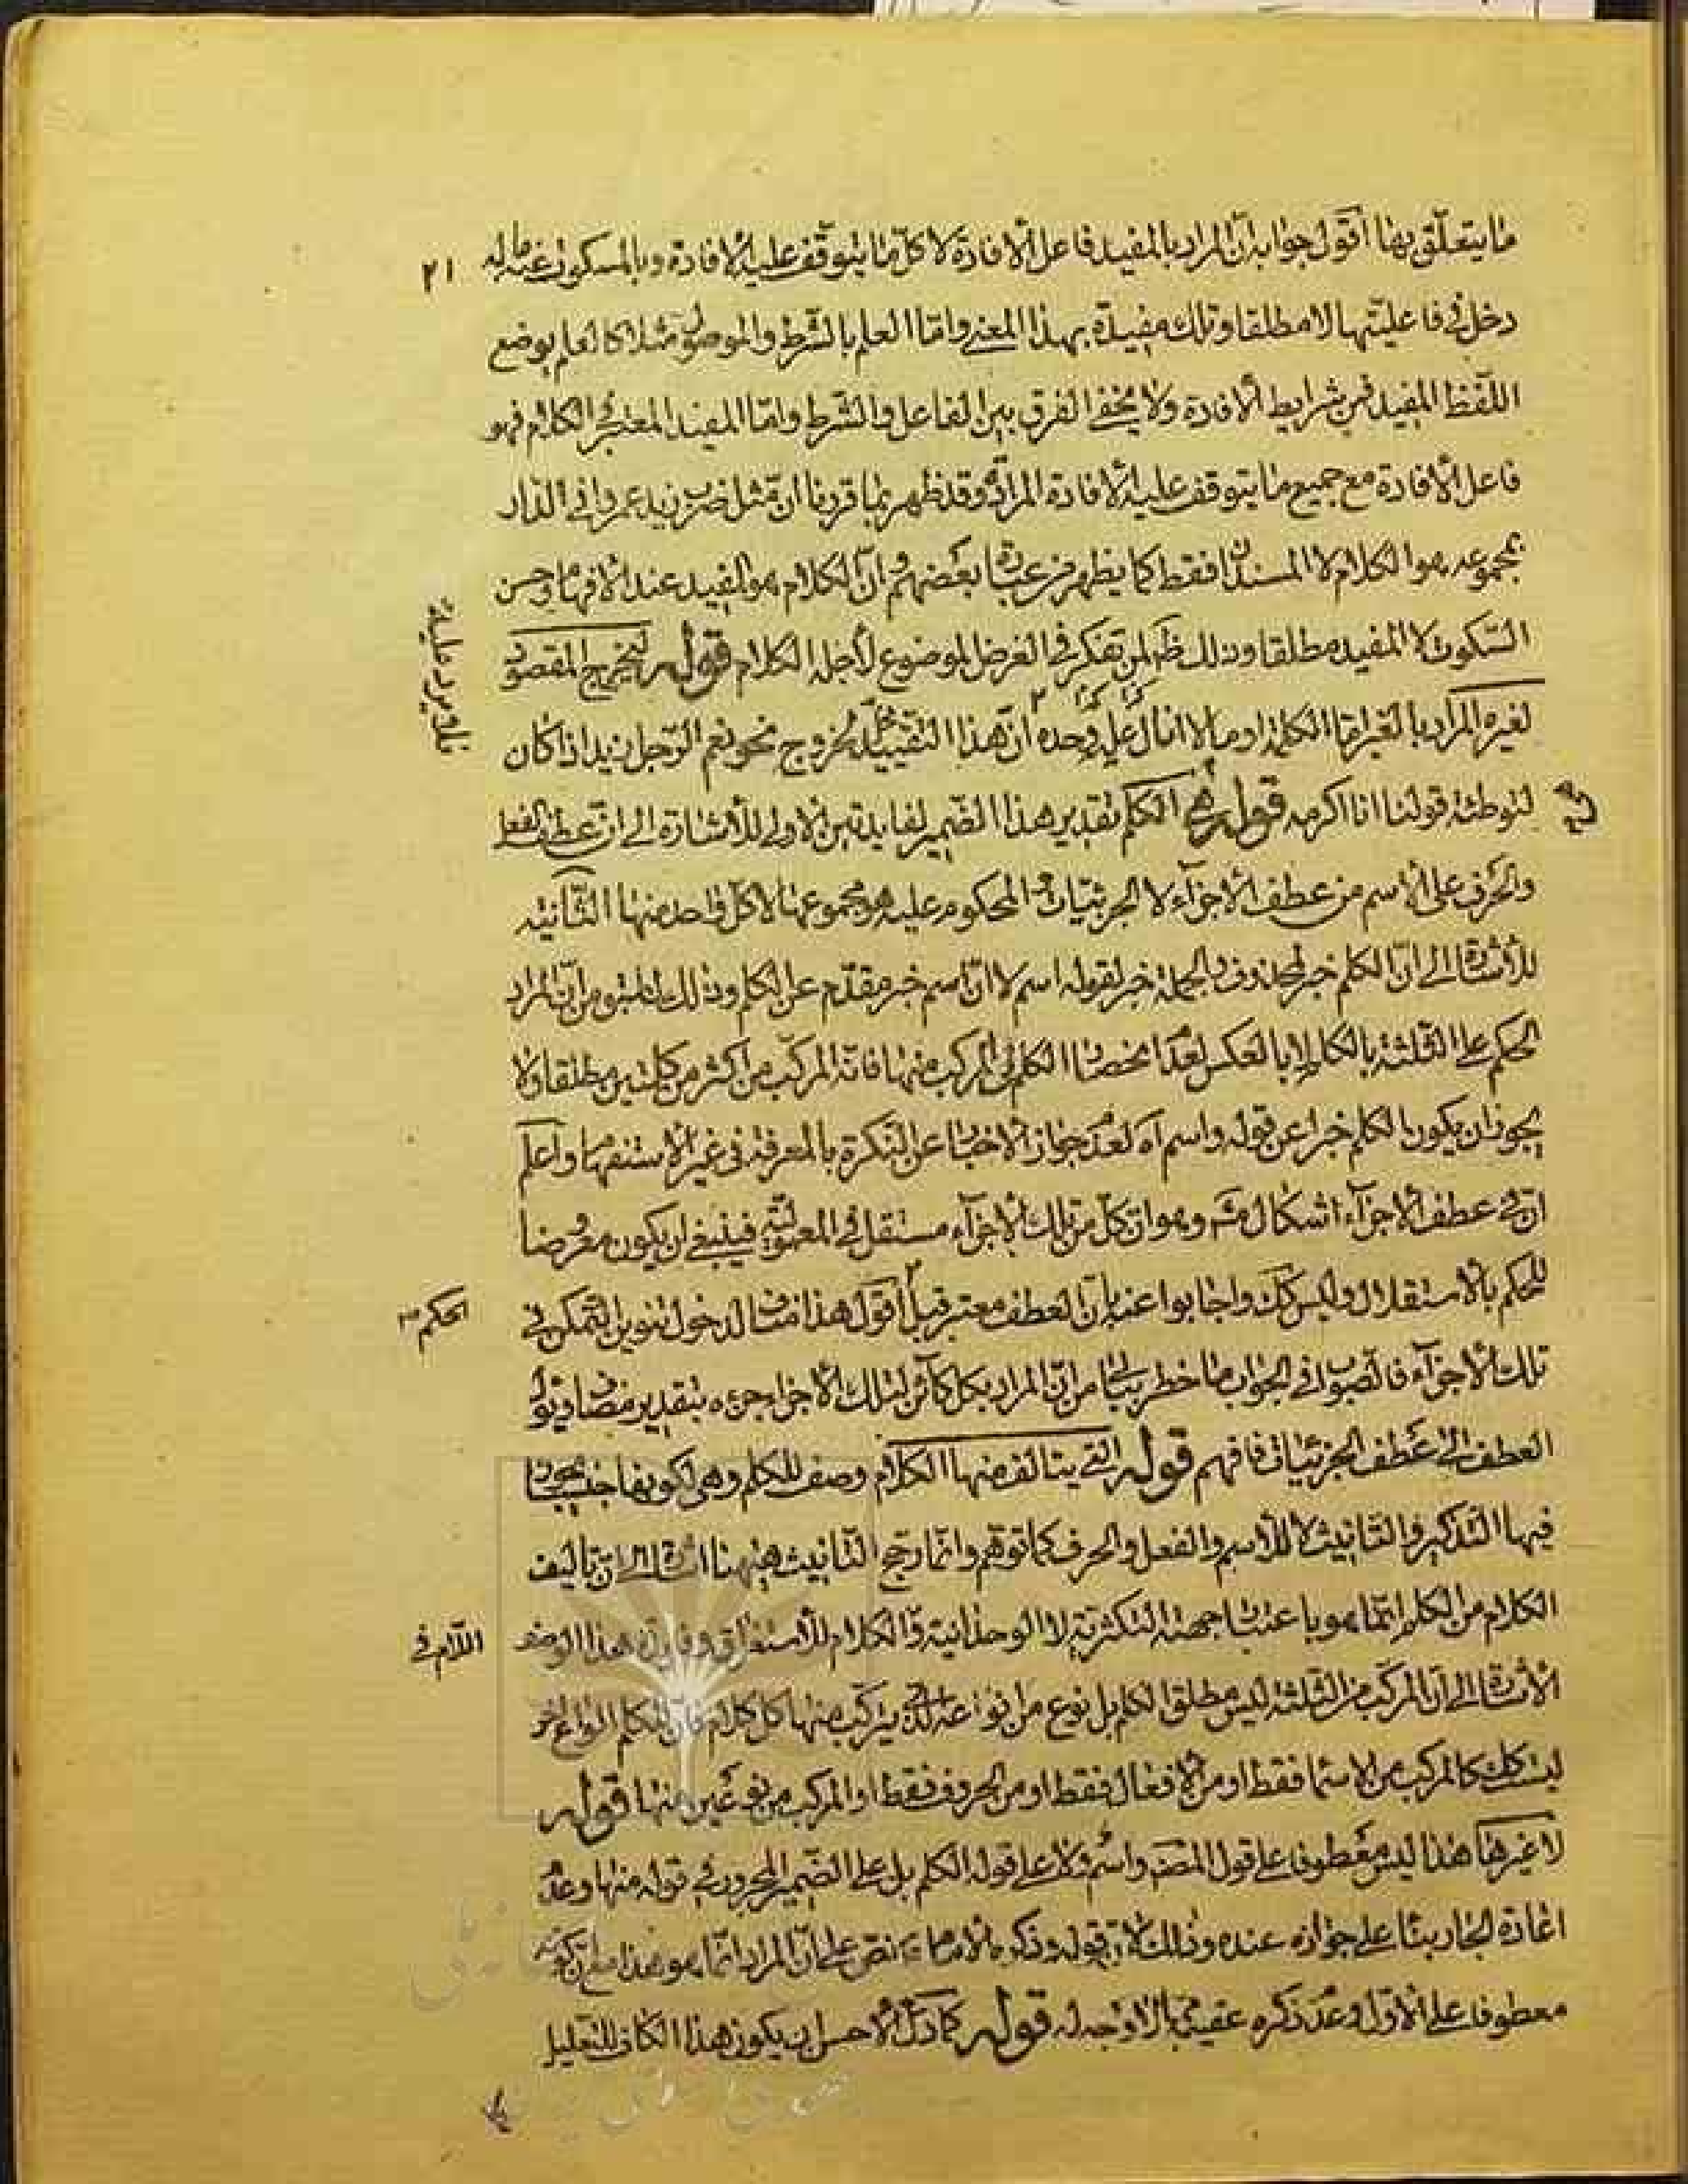 ما يتعلق بها اقول جوابه ان المراد بالمفيد فاعل الافادة لا كل ما يتوقف عليه الافادة وبالمسكون عنه ما له
٢١
دخل في فاعليتها لا مطلقا وتلك مفيدة بهذا المعنى واما العلم بالشرط والموصول مثلا كالعلم بوضع
اللفظ المفيد فمن شرايط الافادة ولا يخفى الفرق بين الفاعل والشرط واما المفيد المعتبر في الكلام فهو
فاعل الافادة مع جميع ما يتوقف عليه الافادة المرادة وقد ظهر بما قررنا ان مثل ضرب زيد عمروا في الدار
بمجموعه هو الكلام لا المسندان فقط كما يظهر من عبارة بعضهم وان الكلام هو المفيد عند الافهام وحسن
السكوت لا المفيد مطلقا وذلك ظ لمن تفكر في الغرض الموضوع لاجله الكلام قوله ليخرج المقصود
لغيره المراد بالغير اما الكلام او ما لا وحده ان هذا التقييد لخروج نحو نعم الرجل زيد اذا كان
لتوطئة قولنا انا اكرمه قوله هي الكلم تقدير هذا الضمير لفايدتين الاولى للاشارة الى ان عطف الفعل
والحرف على الاسم من عطف الاجزاء لا الجزئيات والمحكوم عليه هو مجموعها لا كل واحد منها الثانية
للاشارة الى ان الكلم خبر لمحذوف والجملة خبر لقوله اسم لا ان اسم خبر مقدم عن الكلم وذلك من ان المراد
الحكم على الثلثة بالكلم لا بالعكس لعدم انحصار الكلم في المركب منها فانه المركب من اكثر من كلمتين مطلقا ولا
يجوز ان يكون الكلم خبرا عن قوله واسم اه لعدم جواز الاخبار عن النكرة بالمعرفة في غير الاستفهام واعلم
ان في عطف الاجزاء اشكال مش وهو ان كل من تلك الاجزاء مستقل في المعمولية فينبغي ان يكون معروضا
للحكم بالاستقلال وليس كك واجابوا عنه بان العطف معتبر قبل اقول هذا مناف لدخول تنوين التمكن في
الحكم
تلك الاجزاء فالصواب في الجواب ما خطر ببالي من ان المراد بكل كائن لتلك الاجزاء جزءه بتقدير مضاف
العطف الى عطف الجزئيات فافهم قوله التي يتالف منها الكلام وصف للكلم وهي لكونها جنسا يجوز
فيها التذكير والتانيث لا للاسم والفعل والحرف كما توهم وانما رجح التانيث هيهنا اشارة الى ان تاليف
الكلام من الكلم انما هو باعتبار جهته التكثرية لا الوحدانية والكلام للاستغراق وفايدة هذا الوصف
اللام في
الاشارة الى ان المركب من الثلثة ليس مطلق الكلم بل نوع من انواعه التي يتركب منها كل كلام فان للكلم انواع اخر
ليست كك كالمركب من الاسماء فقط او من الافعال فقط او من الحروف فقط او المركب من نوعين منها قوله
لا غيرها هذا ليس معطوفا على قول المصنف واسم ولا على قوله الكلم بل على الضمير المجرور في قوله منها وعدم
اعادة الجار بناء على جوازه عنده وذلك لان قوله وذكره الامام نص على ان المراد انما هو هذا
معطوفا على الاول وعدم ذكره عقيبها لا وجه له قوله كما دل الاحسن ان يكون هذا الكاف للتعليل